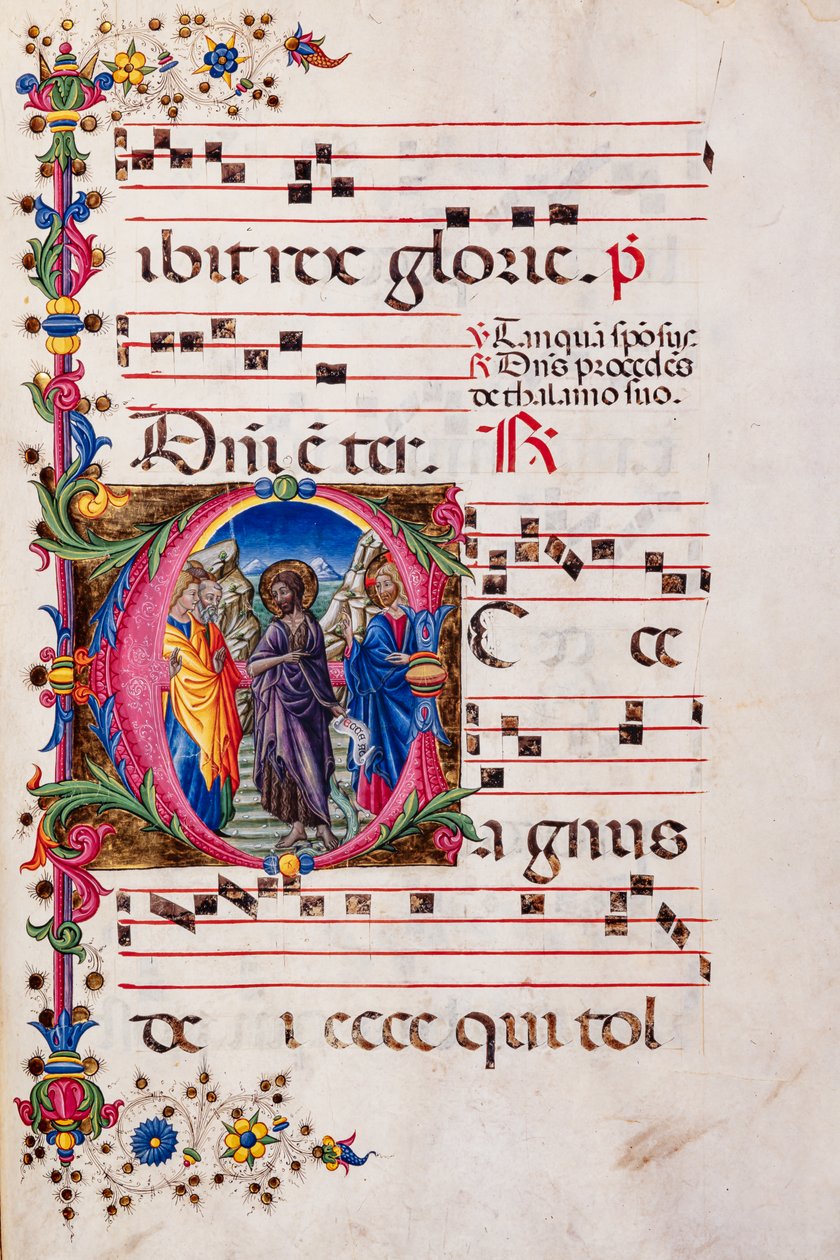 ibit rex glorie. ṗ
℣ Tanquā spōsus.
℟ Dn̄s procedēs
de thalamo suo.
Dn̄i ē ter. ℟
E C ce
ECCE AG
agnus
de i ecce qui tol